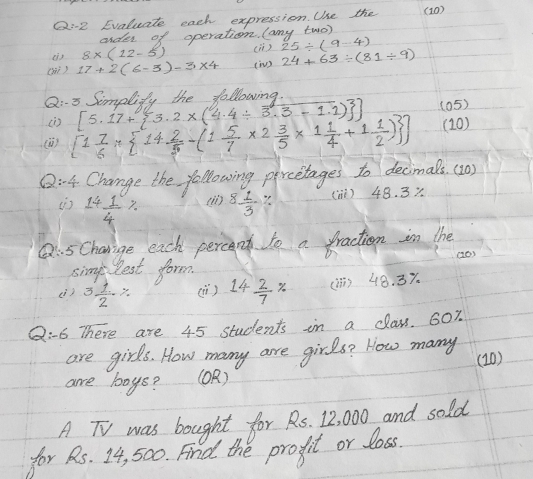 Q:-2 Evaluate each expression. Use the (10)
order of operation. (any two)
(i) 8 × (12 - 5) (ii) 25 ÷ (9 - 4)
(iii) 17 + 2(6 - 3) - 3 × 4 (iv) 24 + 63 ÷ (81 ÷ 9)
Q:-3 Simplify the following.
(i) [5.17 + {3.2 × (4.4 ÷ 3.3 - 1.1)}] (05)
(ii) [1 7/6 × {14 2/5 - (1 5/7 × 2 3/5 × 1 1/4 + 1 1/2)}] (10)
Q:-4 Change the following percetages to decimals. (10)
(i) 14 1/4 % (ii) 8 1/3 % (iii) 48.3 %
Q:-5 Change each percent to a fraction in the
simplest form. (10)
(i) 3 1/2 % (ii) 14 2/7 % (iii) 48.3%
Q:-6 There are 45 students in a class. 60%
are girls. How many are girls? How many
are boys? (OR) (10)
A TV was bought for Rs. 12,000 and sold
for Rs. 14,500. Find the profit or loss.